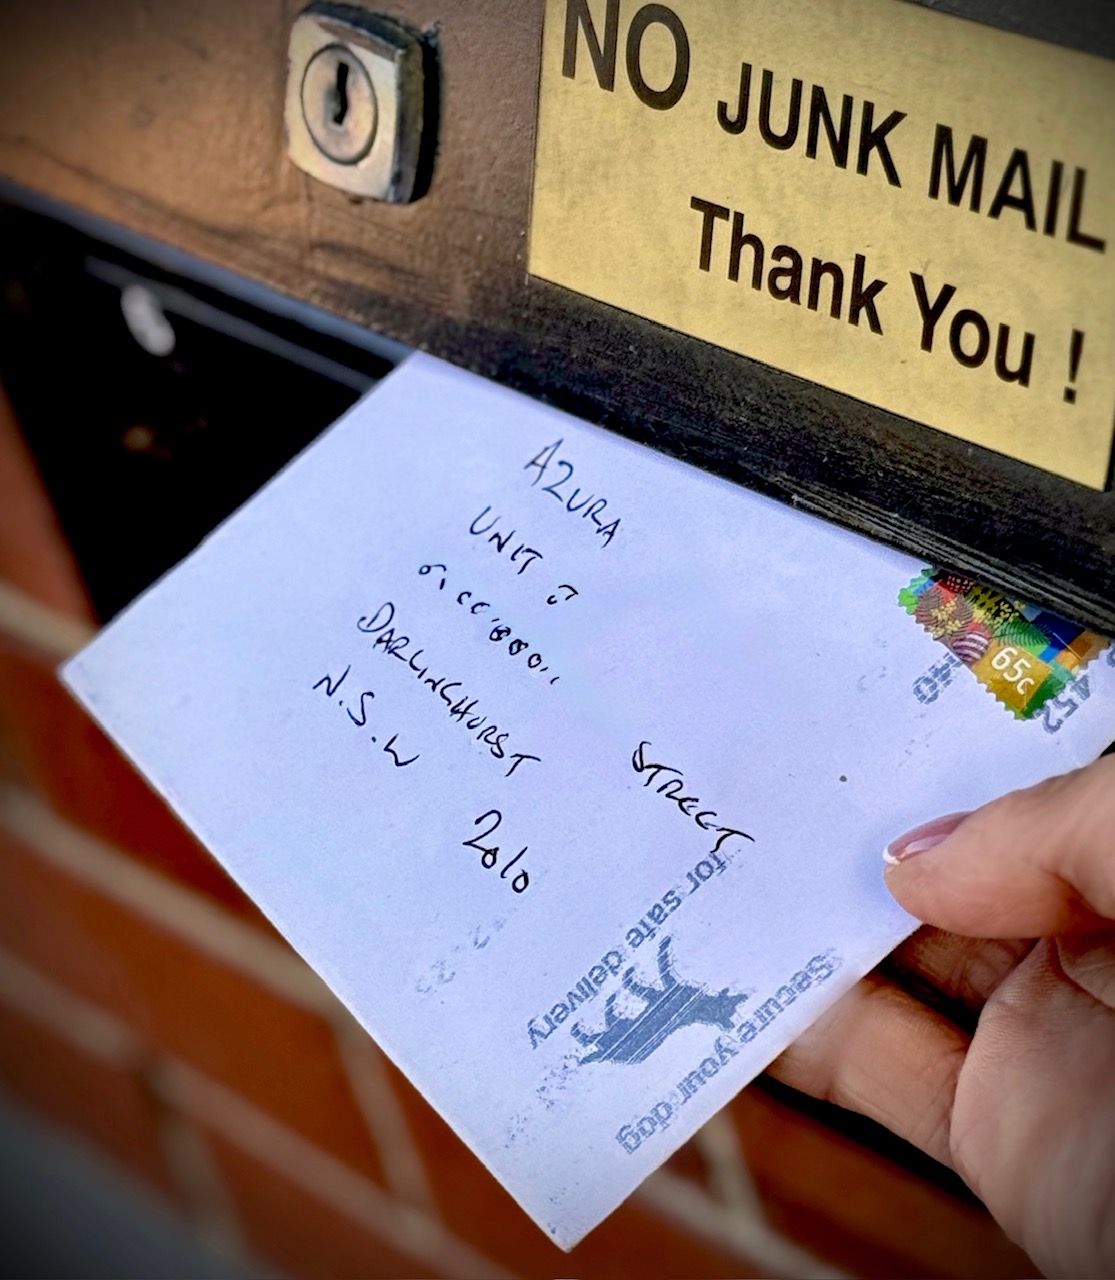 NO JUNK MAIL
Thank You !
AZURA
UNIT
STREET
DARLINGHURST
N.S.W
2010
65c
452
for safe delivery
Secure your dog